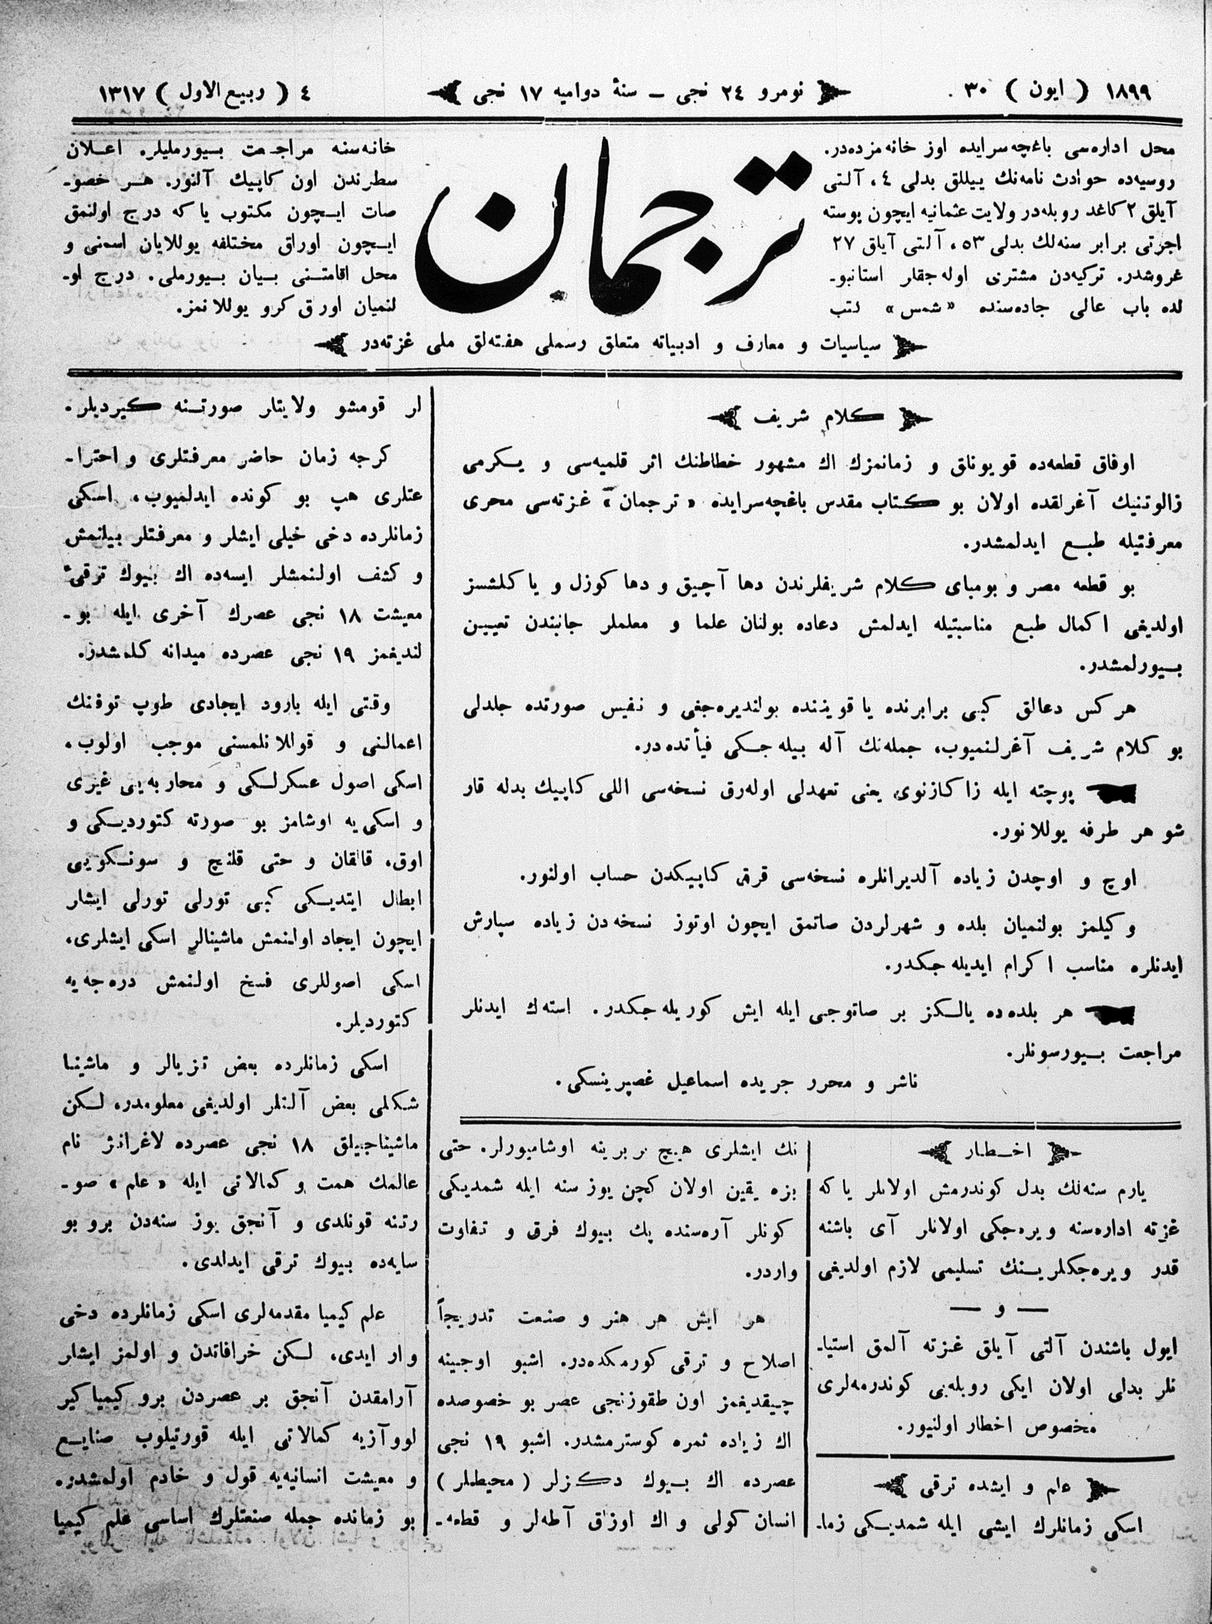 ١٨٩٩ ( ایون ) ٣٠ .
نومرو ٢٤ نجی — سنهٔ دوامیه ١٧ نجی
٤ ( ربیع الاول ) ١٣١٧
محل اداره‌سی باغچه‌سرایده اوز خانه‌مزده‌در.
روسیه‌ده حوادث نامه‌نك ییللق بدلی ٤، آلتی
آیلق ٢ كاغد روبله‌در ولایت عثمانیه ایچون پوسته
اجرتی برابر سنه‌لك بدلی ٥٣، آلتی آیلق ٢٧
غروشدر. تركیه‌دن مشتری اوله‌جقلر استانبو-
لده باب عالی جاده‌سنده «شمس» كتب
ترجمان
خانه‌سنه مراجعت بیورملیلر. اعلان
سطرندن اون كاپیك آلنور. هر خصو-
صات ایچون مكتوب یا كه درج اولنمق
ایچون اوراق مختلفه یوللایان اسمنی و
محل اقامتنی بیان بیورملی. درج او-
لنمیان اورق كرو یوللانمز.
سیاسیات و معارف و ادبیاته متعلق رسملی هفته‌لق ملی غزته‌در
كلام شریف
اوفاق قطعه‌ده قویونلق و زمانمزك اك مشهور خطاطنك اثر قلمیه‌سی و یكرمی
زالوتنیك آغرلقده اولان بو كتاب مقدس باغچه‌سرایده «ترجمان» غزته‌سی محری
معرفتیله طبع ایدلمشدر.
بو قطعه مصر و بومبای كلام شریفلرندن دها آچیق و دها كوزل و یاكلشسز
اولدیغی اكمال طبع مناسبتیله ایدلمش دعاده بولنان علما و معلملر جانبندن تعیین
بیورلمشدر.
هر كس دعالق كبی برابرنده یا قویننده بولندیره‌جغی و نفیس صورتده جلدلی
بو كلام شریف آغرلنمیوب، جمله‌نك آله بیله‌جكی فیأتده‌در.
پوچته ایله زاكازنوی یعنی تعهدلی اوله‌رق نسخه‌سی اللی كاپیك بدله قار
شو هر طرفه یوللانور.
اوچ و اوچدن زیاده آلدیرانلره نسخه‌سی قرق كاپیكدن حساب اولنور.
وكیلمز بولنمیان بلده و شهرلردن صاتمق ایچون اوتوز نسخه‌دن زیاده سپارش
ایدنلره مناسب اكرام ایدیله‌جكدر.
هر بلده‌ده یالكز بر صاتوجی ایله ایش كوریله‌جكدر. استه‌ك ایدنلر
مراجعت بیورسونلر.
ناشر و محرر جریده اسماعیل غصپرینسكی.
اخطار
یارم سنه‌لك بدل كوندرمش اولانلر یا كه
غزته اداره‌سنه ویره‌جكی اولانلر آی باشنه
قدر ویره‌جكلرینك تسلیمی لازم اولدیغی
— و —
ایول باشندن آلتی آیلق غزته آلمق استیا-
نلر بدلی اولان ایكی روبله‌یی كوندرمه‌لری
مخصوص اخطار اولنیور.
علم و ایشده ترقی
اسكی زمانلرك ایشی ایله شمدیكی زما-
نك ایشلری هیچ بربرینه اوشامیورلر. حتی
بزه یقین اولان كچن یوز سنه ایله شمدیكی
كونلر آره‌سنده پك بیوك فرق و تفاوت
واردر.
هر ایش هر هنر و صنعت تدریجاً
اصلاح و ترقی كورمكده‌در. اشبو اوجینه
چیقدیغمز اون طقوزنجی عصر بو خصوصده
اك زیاده ثمره كوسترمشدر. اشبو ١٩ نجی
عصرده اك بیوك دكزلر ( محیطلر )
انسان كولی و اك اوزاق آطه‌لر و قطعه-
لر قومشو ولایتلر صورتنه كیردیلر.
كرجه زمان حاضر معرفتلری و اختراـ
عتلری هپ بو كونده ایدلمیوب، اسكی
زمانلرده دخی خیلی ایشلر و معرفتلر بیلنمش
و كشف اولنمشلر ایسه‌ده اك بیوك ترقیٔ
معیشت ١٨ نجی عصرك آخری ایله بو-
لندیغمز ١٩ نجی عصرده میدانه كلمشدر.
وقتی ایله بارود ایجادی طوپ توفنك
اعمالنی و قوللانلمسنی موجب اولوب،
اسكی اصول عسكرلكی و محاربه‌یی غیری
و اسكی‌یه اوشامز بو صورته كتوردیكی و
اوق، قالقان و حتی قلنج و سونكویی
ابطال ایتدیكی كبی تورلی تورلی ایشلر
ایچون ایجاد اولنمش ماشینالر اسكی ایشلری،
اسكی اصوللری فسخ اولنمش درجه‌یه
كتوردیلر.
اسكی زمانلرده بعض تزیالر و ماشینا
شكلی بعض آلتلر اولدیغی معلومدر، لكن
ماشیناجیلق ١٨ نجی عصرده لاغرانژ نام
عالمك همت و كمالاتی ایله «علم» صو-
رتنه قونلدی و آنجق یوز سنه‌دن برو بو
سایه‌ده بیوك ترقی ایدلدی.
علم كیمیا مقدمه‌لری اسكی زمانلرده دخی
وار ایدی، لكن خرافاتدن و اولمز ایشلر
آرامقدن آنجق بر عصردن برو كیمیاكیر
لووآزیه كمالاتی ایله قورتیلوب صنایع
و معیشت انسانیه‌یه قول و خادم اولمشدر.
بو زمانده جمله صنعتلرك اساسی علم كیمیا